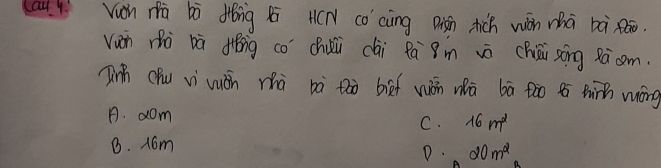 Câu 4: Vườn nhà bà Hồng là HCN có cùng diện tích vườn nhà bà Đào.
Vườn nhà bà Hồng có chiều dài là 8m và chiều rộng là 2m.
Tính chu vi vườn nhà bà Đào biết vườn nhà bà Đào là hình vuông
A. 20m
C. 16 m²
B. 16m
D. 20m²